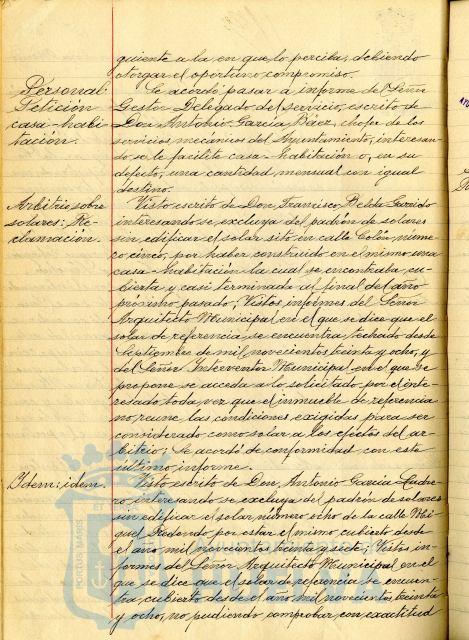 guiente a la en que lo perciba, debiendo
otorgar el oportuno compromiso.
Personal:
Petición
casa-habi
tación.
Se acordó pasar a informe del Señor
Gestor Delegado del servicio, escrito de
Don Antonio García Báez, chofer de los
servicios mecánicos del Ayuntamiento, interesan-
do se le facilite casa-habitación o, en su
defecto, una cantidad mensual con igual
destino.
Arbitrio sobre
solares: Re-
clamacion.
Visto escrito de Don Francisco Belda Garrido
interesando se excluya del padrón de solares
sin edificar el solar sito en calle Colón, núme-
ro cinco, por haber construido en el mismo una
casa-habitación la cual se encontraba cu-
bierta y casi terminada al final del año
próximo pasado; Vistos informes del Señor
Arquitecto Municipal en el que se dice que el
solar de referencia se encuentra techado desde
Septiembre de mil novecientos treinta y ocho, y
del Señor Interventor Municipal en el que se
propone se acceda a lo solicitado por el inte-
resado toda vez que el inmueble de referencia
no reune las condiciones exigidas para ser
considerado como solar a los efectos del ar-
bitrio; Se acordó de conformidad con este
último informe.
Ydem: idem.
Visto escrito de Don Antonio García
interesando se excluya del padrón de solares
sin edificar el solar número ocho de la calle Mi-
guel Redondo por estar el mismo cubierto desde
el año mil novecientos treinta y siete; Vistos in-
formes del Señor Arquitecto Municipal en el
que se dice que el solar de referencia se encuen-
tra cubierto desde el año mil novecientos treinta
y ocho, no pudiendo comprobar con exactitud
PORTUS MARIS